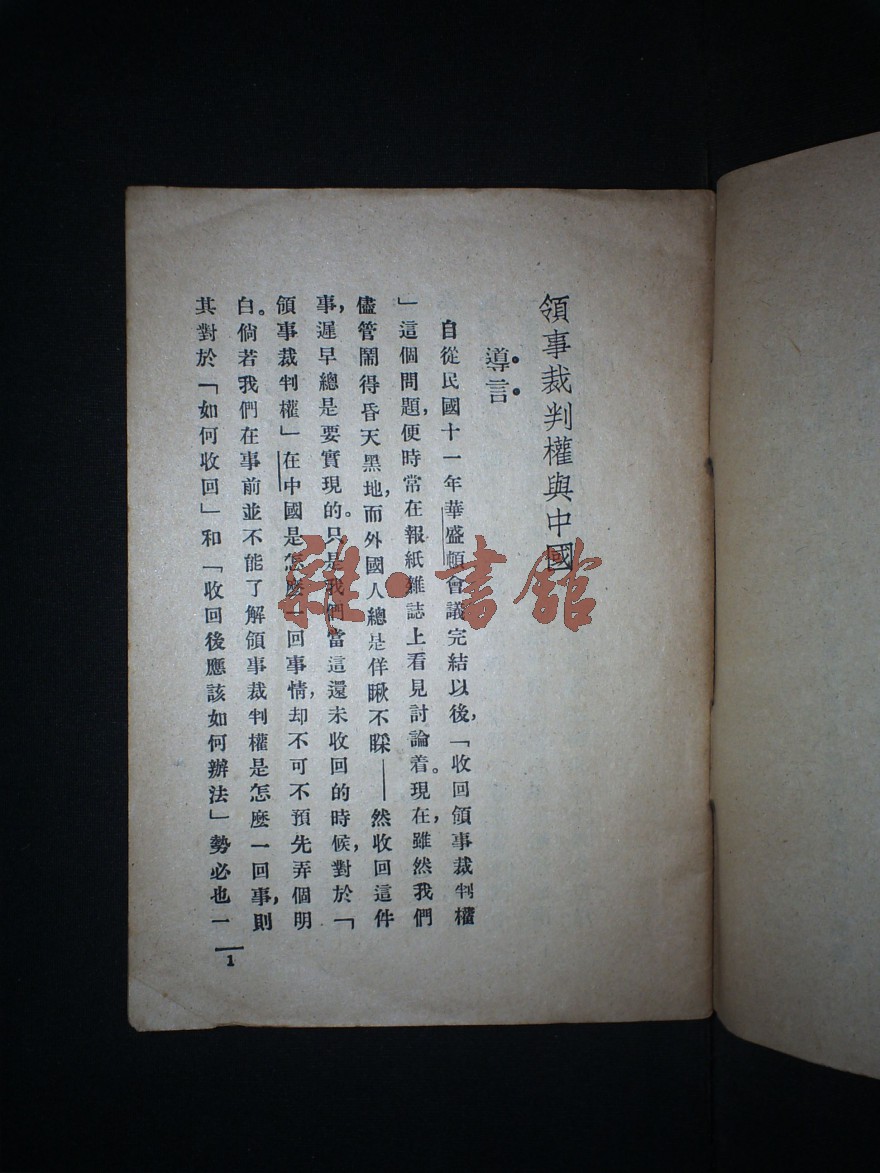 領事裁判權與中國
導言
自從民國十一年華盛頓會議完結以後，「收回領事裁判權
」這個問題，便時常在報紙雜誌上看見討論着。現在，雖然我們
儘管鬧得昏天黑地，而外國人總是佯瞅不睬——然收回這件
事，遲早總是要實現的。只是我們當這還未收回的時候，對於「
領事裁判權」在中國是怎麼一回事情，却不可不預先弄個明
白。倘若我們在事前並不能了解領事裁判權是怎麼一回事，則
其對於「如何收回」和「收回後應該如何辦法」勢必也一
1
雜·書館